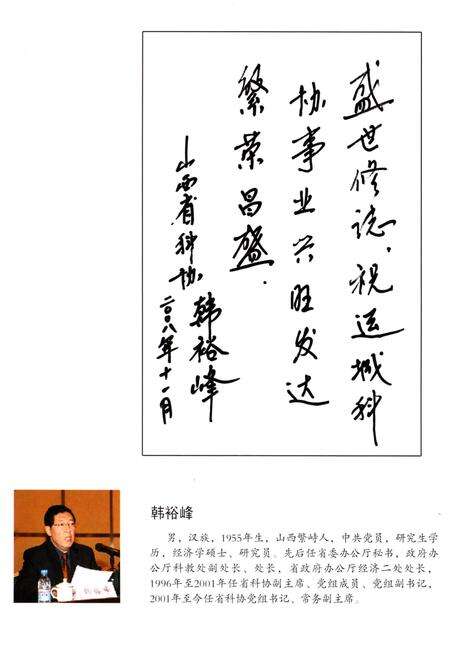 盛世修誌，祝运城科
协事业兴旺发达
繁荣昌盛．
山西省科协
韩裕峰
二〇〇八年十一月
韩裕峰
男，汉族，1955年生，山西繁峙人，中共党员，研究生学
历，经济学硕士、研究员。先后任省委办公厅秘书，政府办
公厅科教处副处长、处长，省政府办公厅经济二处处长，
1996年至2001年任省科协副主席、党组成员、党组副书记，
2001年至今任省科协党组书记、常务副主席。